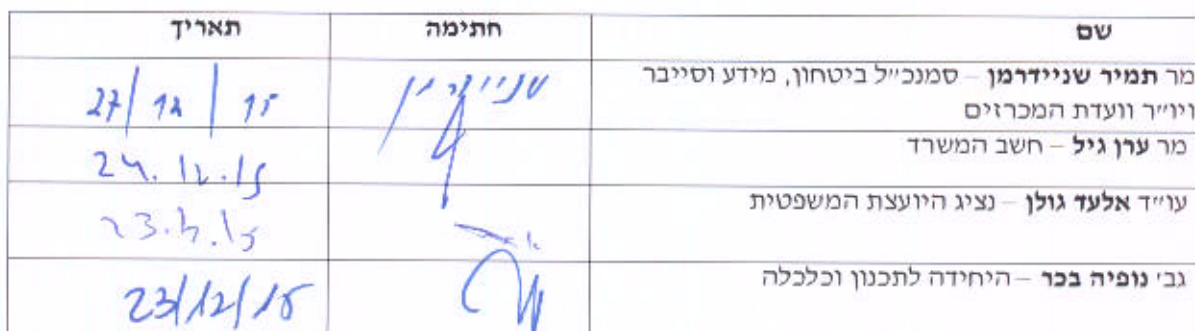 שם חתימה תאריך
מר תמיר שניידרמן – סמנכ״ל ביטחון, מידע וסייבר
ויו״ר וועדת המכרזים
שניידרמן 27/12/15
מר ערן גיל – חשב המשרד
24.12.15
עו״ד אלעד גולן – נציג היועצת המשפטית
גב׳ נופיה בכר – היחידה לתכנון וכלכלה
23/12/15